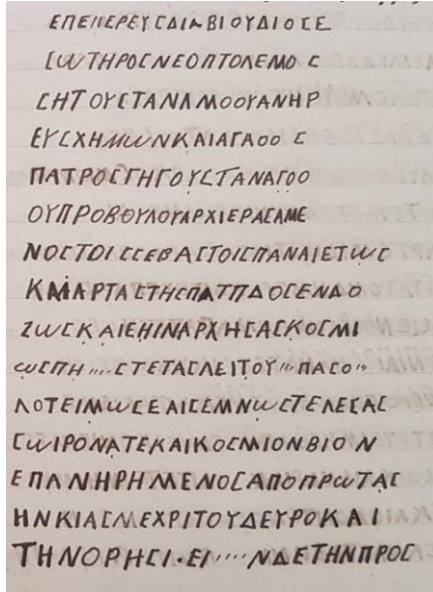 ΕΠΕΠΕΡΕΥϹΔΙΑΒΙΟΥΔΙΟϹΣΕ
ϹωΤΗΡΟϹΝΕΟΠΤΟΛΕΜΟϹ
ϹΗΤΟΥϹΤΑΝΛΜΟΟΥΑΝΗΡ
ΕΥϹΧΗΜωΝΚΑΙΑΓΑΟΟϹ
ΠΑΤΡΟϹΓΗΓΟΥϹΤΑΝΑΓΟΟ
ΟΥΠΡΟΒΟΥΛΟΥΑΡΧΙΕΡΑϹΑΜΕ
ΝΟϹΤΟΙϹϹΕΒΑϹΤΟΙϹΠΑΝΑΙΕΤωϹ
ΚΜΑΡΤΑϹΤΗϹΠΑΤΠΔΟϹΕΝΔΟ
ΖωϹΚΑΙΕΗΙΝΑΡΧΗϹΑϹΚΟϹΜΙ
ωϹΠΗ....ϹΤΕΤΑϹΛΕΙΤΟΥ..ΠΑϹΟ..
ΛΟΤΕΙΜωϹΕΑΙϹΕΜΝωϹΤΕΛΕϹΑϹ
ϹωΙΡΟΝΑΤΕΚΑΙΚΟϹΜΙΟΝΒΙΟΝ
ΕΠΑΝΗΡΗΜΕΝΟϹΑΠΟΠΡωΤΑϹ
ΗΝΚΙΑϹΜΕΧΡΙΤΟΥΔΕΥΡΟΚΑΙ
ΤΗΝΟΡΗϹΙ.ΕΙ....ΝΔΕΤΗΝΠΡΟϹ